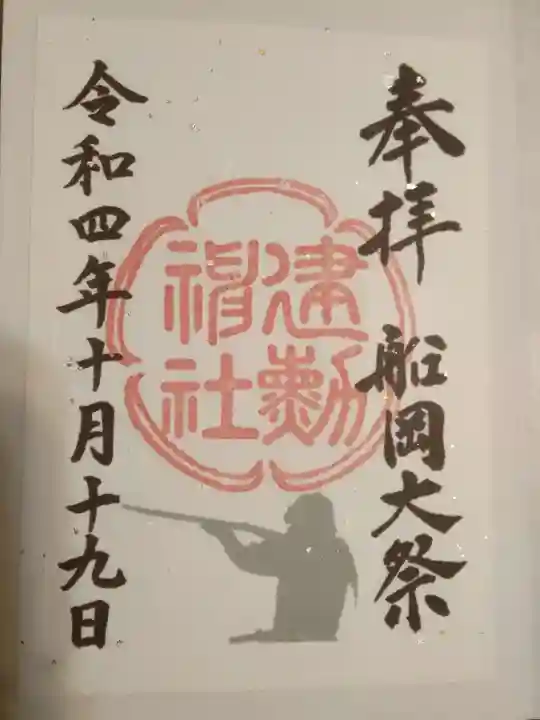 奉拝 船岡大祭
建勲
神社
令和四年十月十九日